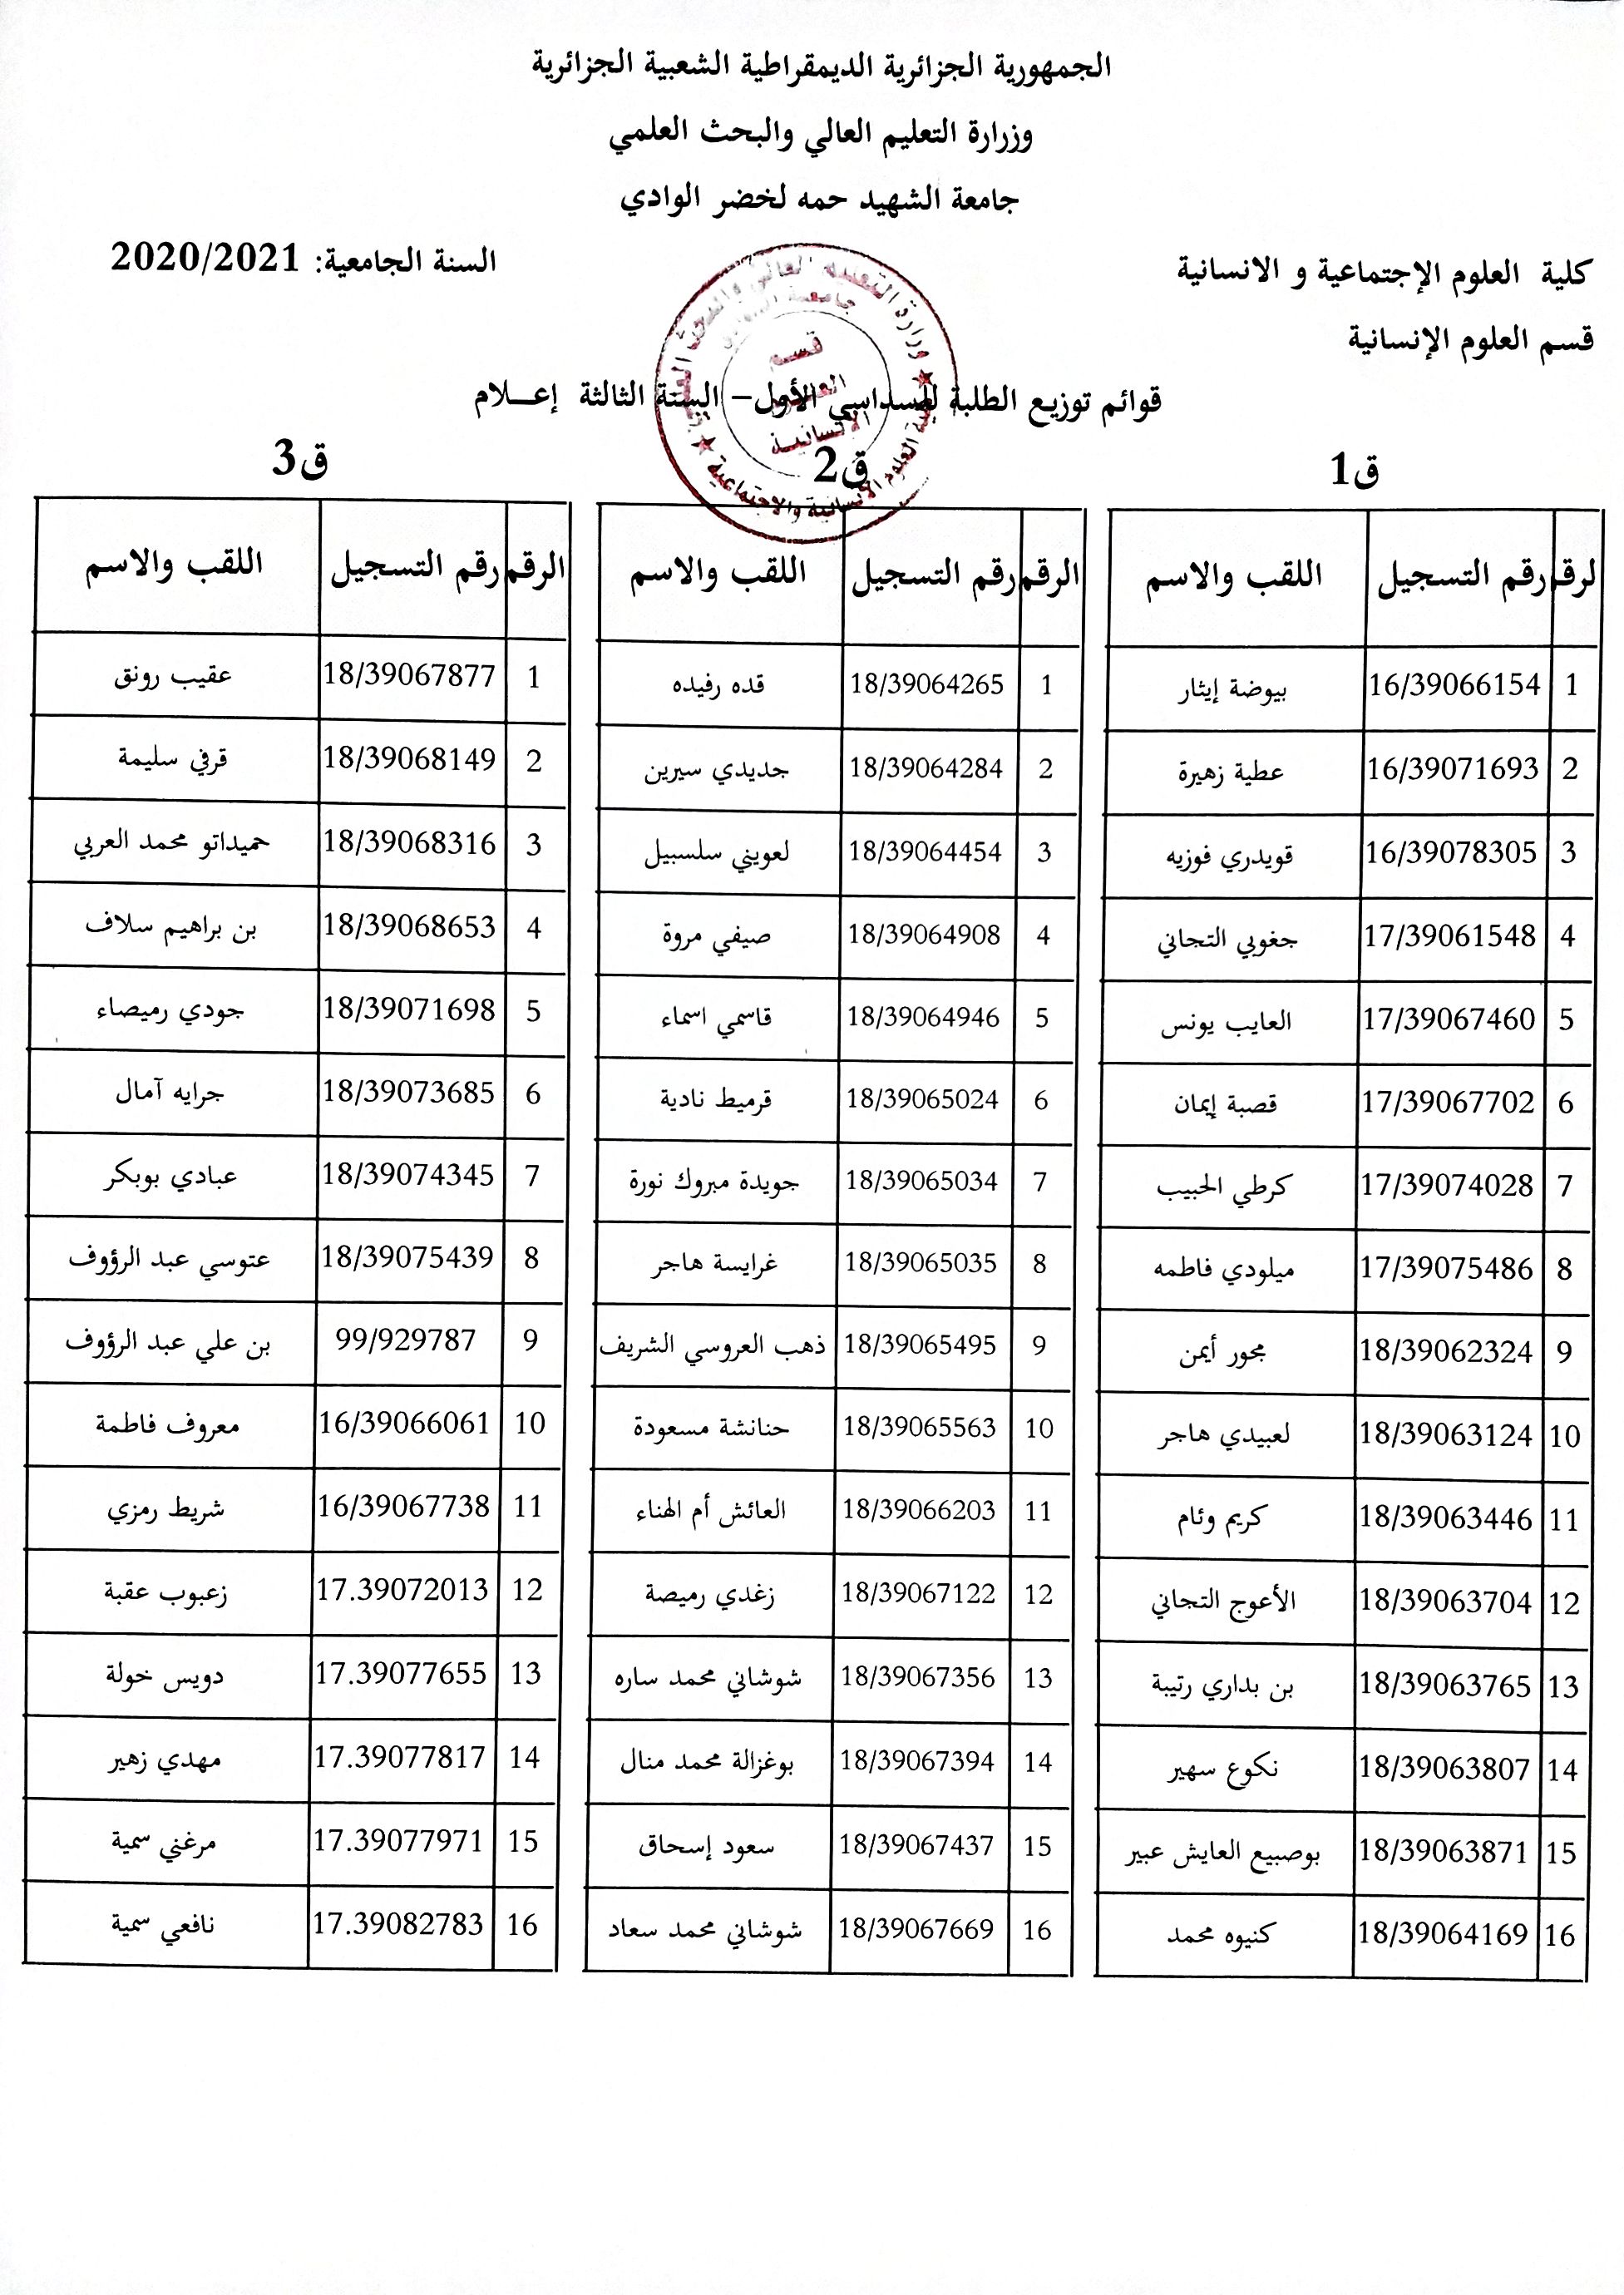 الجمهورية الجزائرية الديمقراطية الشعبية الجزائرية
وزرارة التعليم العالي والبحث العلمي
جامعة الشهيد حمه لخضر الوادي
كلية العلوم الإجتماعية و الانسانية
السنة الجامعية: 2020/2021
قسم العلوم الإنسانية
قوائم توزيع الطلبة للسداسي الأول– السنة الثالثة إعــلام
قسم
العلوم
الإنسانية
ق1
الرقم رقم التسجيل اللقب والاسم
1 16/39066154 بيوضة إيثار
2 16/39071693 عطية زهيرة
3 16/39078305 قويدري فوزيه
4 17/39061548 جغوبي التجاني
5 17/39067460 العايب يونس
6 17/39067702 قصبة إيمان
7 17/39074028 كرطي الحبيب
8 17/39075486 ميلودي فاطمه
9 18/39062324 محور أيمن
10 18/39063124 لعبيدي هاجر
11 18/39063446 كريم وئام
12 18/39063704 الأعوج التجاني
13 18/39063765 بن بداري رتيبة
14 18/39063807 نكوع سهير
15 18/39063871 بوصبيع العايش عبير
16 18/39064169 كنيوه محمد
ق2
الرقم رقم التسجيل اللقب والاسم
1 18/39064265 قده رفيده
2 18/39064284 جديدي سيرين
3 18/39064454 لعويني سلسبيل
4 18/39064908 صيفي مروة
5 18/39064946 قاسمي اسماء
6 18/39065024 قرميط نادية
7 18/39065034 جويدة مبروك نورة
8 18/39065035 غرايسة هاجر
9 18/39065495 ذهب العروسي الشريف
10 18/39065563 حنانشة مسعودة
11 18/39066203 العائش أم الهناء
12 18/39067122 زغدي رميصة
13 18/39067356 شوشاني محمد ساره
14 18/39067394 بوغزالة محمد منال
15 18/39067437 سعود إسحاق
16 18/39067669 شوشاني محمد سعاد
ق3
الرقم رقم التسجيل اللقب والاسم
1 18/39067877 عقيب رونق
2 18/39068149 قرفي سليمة
3 18/39068316 حميداتو محمد العربي
4 18/39068653 بن براهيم سلاف
5 18/39071698 جودي رميصاء
6 18/39073685 جرايه آمال
7 18/39074345 عبادي بوبكر
8 18/39075439 عتوسي عبد الرؤوف
9 99/929787 بن علي عبد الرؤوف
10 16/39066061 معروف فاطمة
11 16/39067738 شريط رمزي
12 17.39072013 زعبوب عقبة
13 17.39077655 دويس خولة
14 17.39077817 مهدي زهير
15 17.39077971 مرغني سمية
16 17.39082783 نافعي سمية